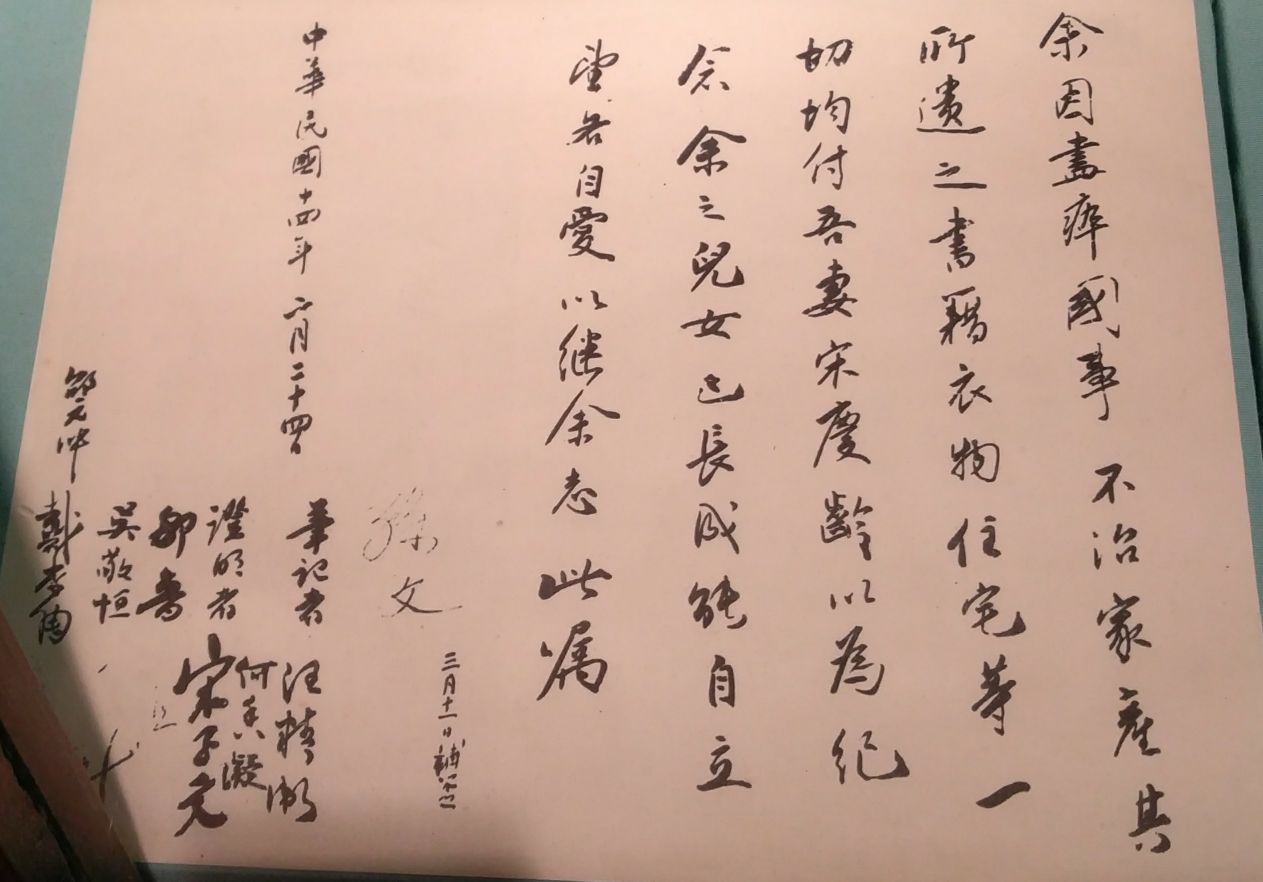 余因盡瘁國事不治家產其
所遺之書籍衣物住宅等一
切均付吾妻宋慶齡以為紀
念余之兒女已長成能自立
望各自愛以继余志此屬
三月十一日補簽
孫文
中華民國十四年二月二十四日
筆記者 汪精衛
證明者 何香凝
宋子文
鄒魯
吳敬恒
戴季陶
邵元冲